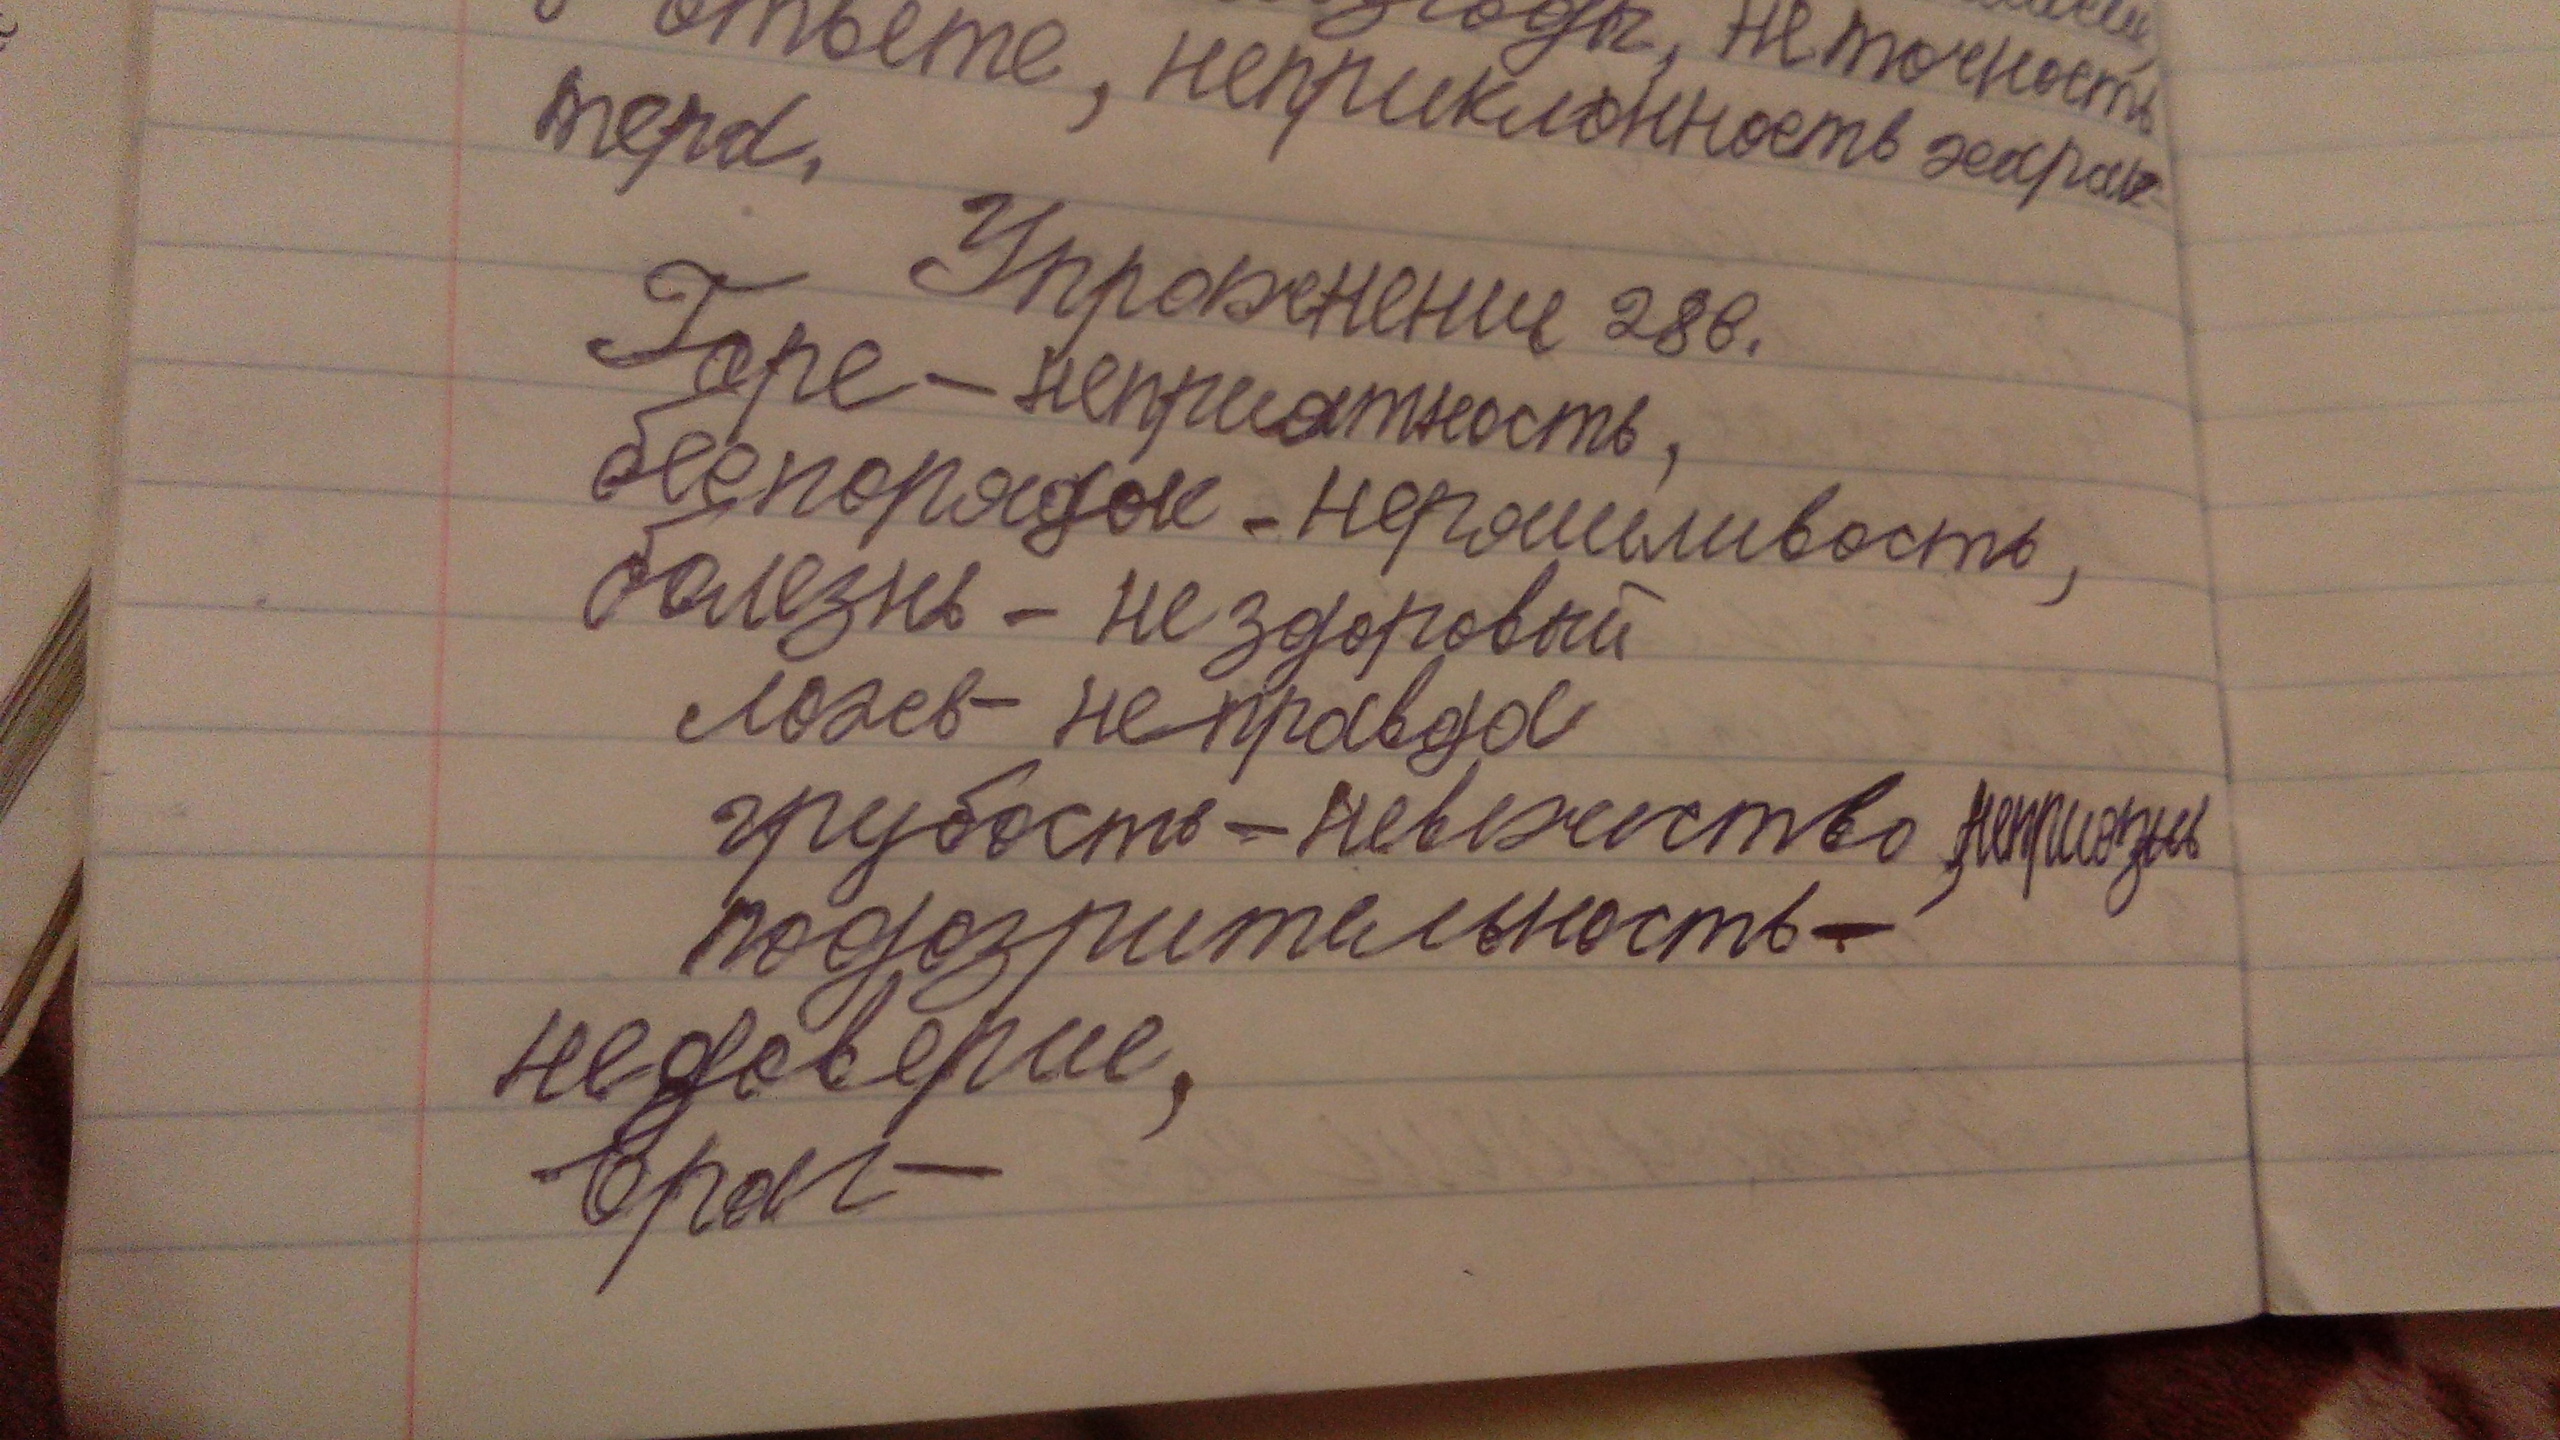 ответе, неточность
неприклонность харак-
тера.
Упражнение 286.
Горе - неприятность,
беспорядок - неряшливость,
болезнь - не здоровый
ложь - не правда
грубость - невежество, неприязнь
подозрительность -
недоверие,
враг -